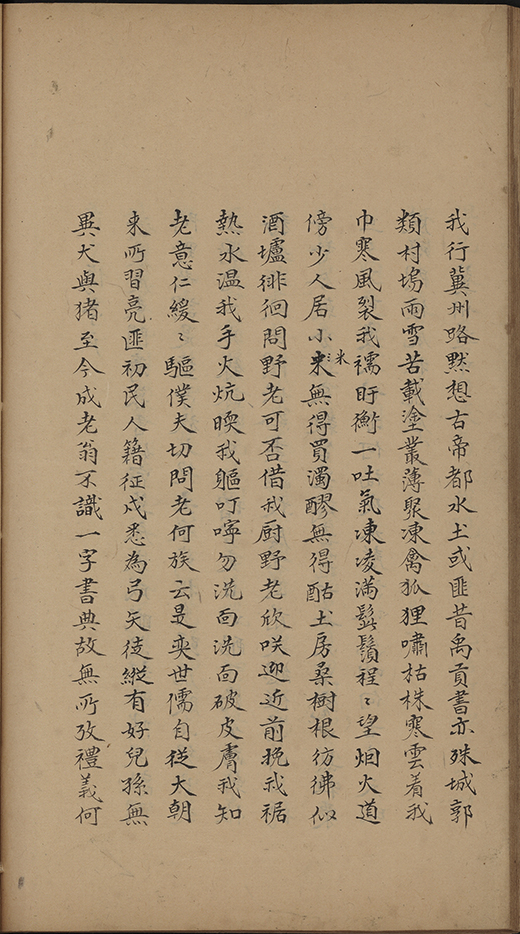 我行冀州路黙想古帝都水土或匪昔禹貢書亦殊城郭
類村塢雨雪苦載塗叢薄聚凍禽狐狸嘯枯株寒雲着我
巾寒風裂我襦盱衡一吐氣凍凌滿髭鬚程〻望烟火道
傍少人居小来米無得買濁醪無得酤土房桑樹根彷彿似
酒壚徘徊問野老可否借我厨野老欣咲迎近前挽我裾
熱水温我手火炕暖我軀叮嚀勿洗面洗面破皮膚我知
老意仁緩〻驅僕夫切問老何族云是奕世儒自從大朝
来所習亮匪初民人籍征戍悉為弓矢徒縱有好兒孫無
異犬與猪至今成老翁不識一字書典故無所攷禮義何